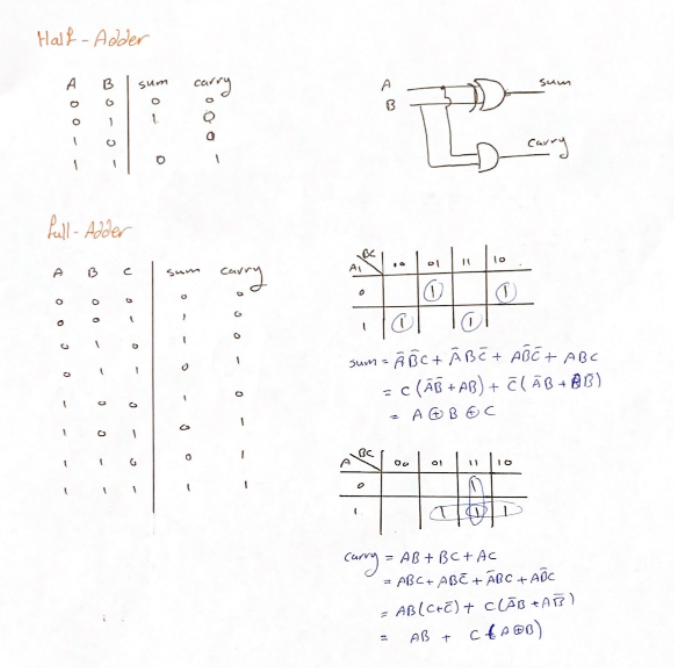 Half-Adder
A B sum carry
0 0 0 0
0 1 1 0
1 0 0
1 1 0 1
A
B
sum
carry
full-Adder
A B C sum carry
0 0 0 0 0
0 0 1 1 0
0 1 0 1 0
0 1 1 0 1
1 0 0 1 0
1 0 1 0 1
1 1 0 0 1
1 1 1 1 1
A BC 00 01 11 10
0 1 1
1 1 1
sum = A̅B̅C + A̅BC̅ + AB̅C̅ + ABC
= C(A̅B̅ + AB) + C̅(A̅B + AB̅)
= A⊕B⊕C
A BC 00 01 11 10
0 1
1 1 1 1
carry = AB + BC + AC
= ABC + ABC̅ + A̅BC + AB̅C
= AB(C+C̅) + C(A̅B + AB̅)
= AB + C(A⊕B)